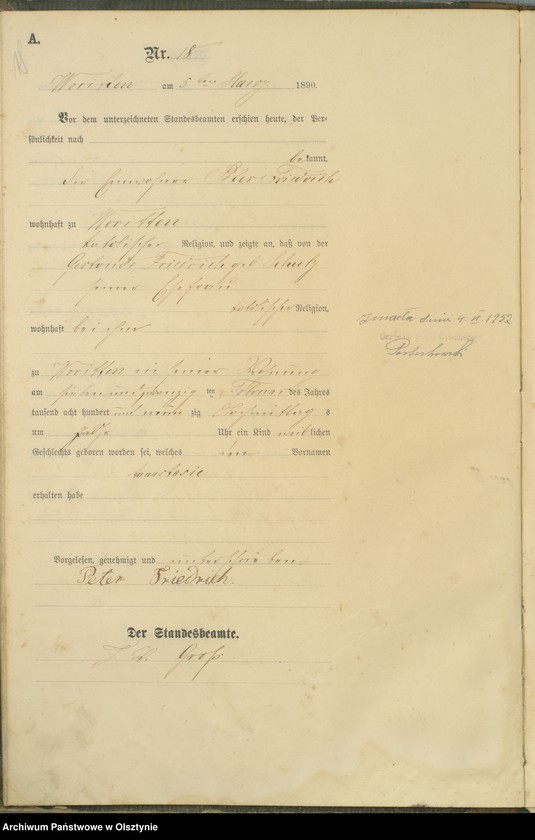 A.
Nr. 18
Woritten am 5ten März 1890.
Vor dem unterzeichneten Standesbeamten erschien heute, der Per-
sönlichkeit nach
bekannt,
der Peter Friedrich
wohnhaft zu Woritten
katolischer Religion, und zeigte an, daß von der
Gertrude Friedrich geb. Schulz
seiner Ehefrau
katolischer Religion,
wohnhaft bei ihm
zu Woritten in seiner Wohnung
am sieben und zwanzig ten Februar des Jahres
tausend acht hundert und neun zig Vormittag s
um Uhr ein Kind weib lichen
Geschlechts geboren worden sei, welches den Vornamen
Anastasie
erhalten habe
Vorgelesen, genehmigt und unterschrieben.
Peter Friedrich.
Der Standesbeamte.
Zmarła dnia 4. IX. 1952
Archiwum Państwowe w Olsztynie